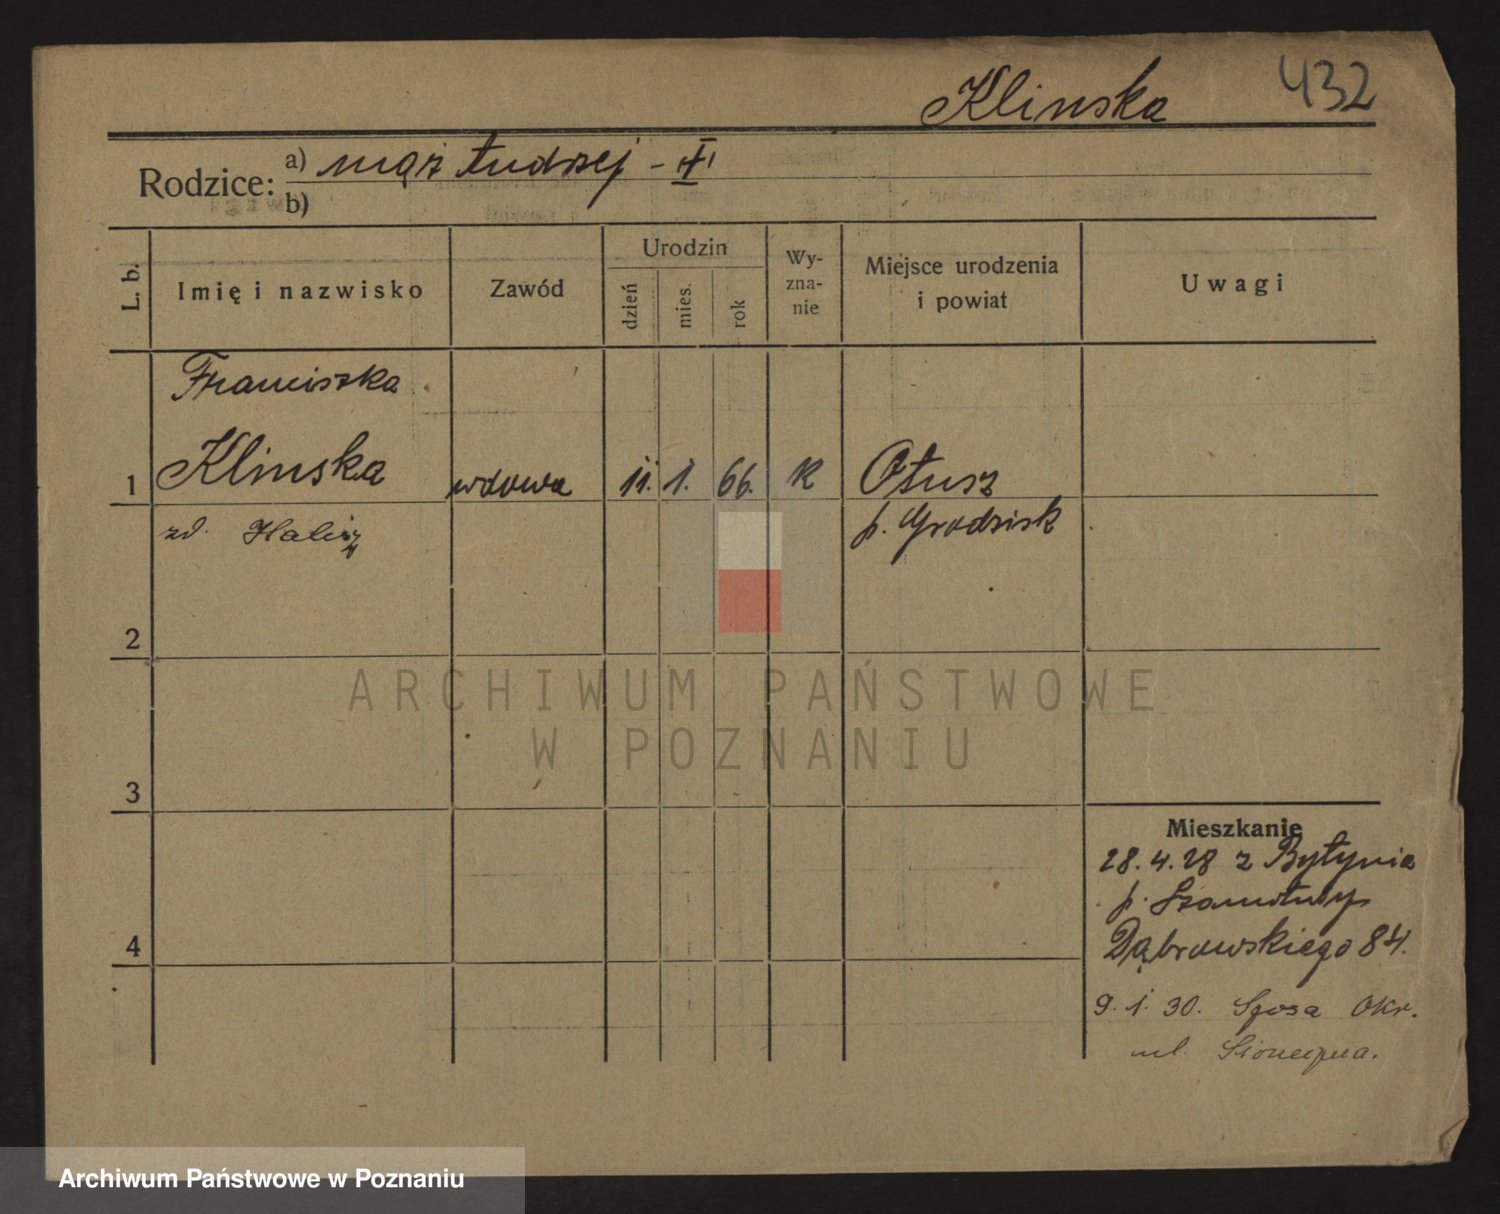 432
Klinska
Rodzice: a) mąż Andrzej -
b)
L. b.
Imię i nazwisko
Zawód
Urodzin
dzień
mies.
rok
Wy-
zna-
nie
Miejsce urodzenia
i powiat
Uwagi
Franciszka
1 Klinska wdowa 11. 1. 66. k Otusz
zd. p. Grodzisk
2
3
4
Mieszkanie
28.4.28 z Bytynia
p. Szamotuły
Dąbrowskiego 84.
9.1.30. Okr.
ul.
ARCHIWUM PAŃSTWOWE
W POZNANIU
Archiwum Państwowe w Poznaniu